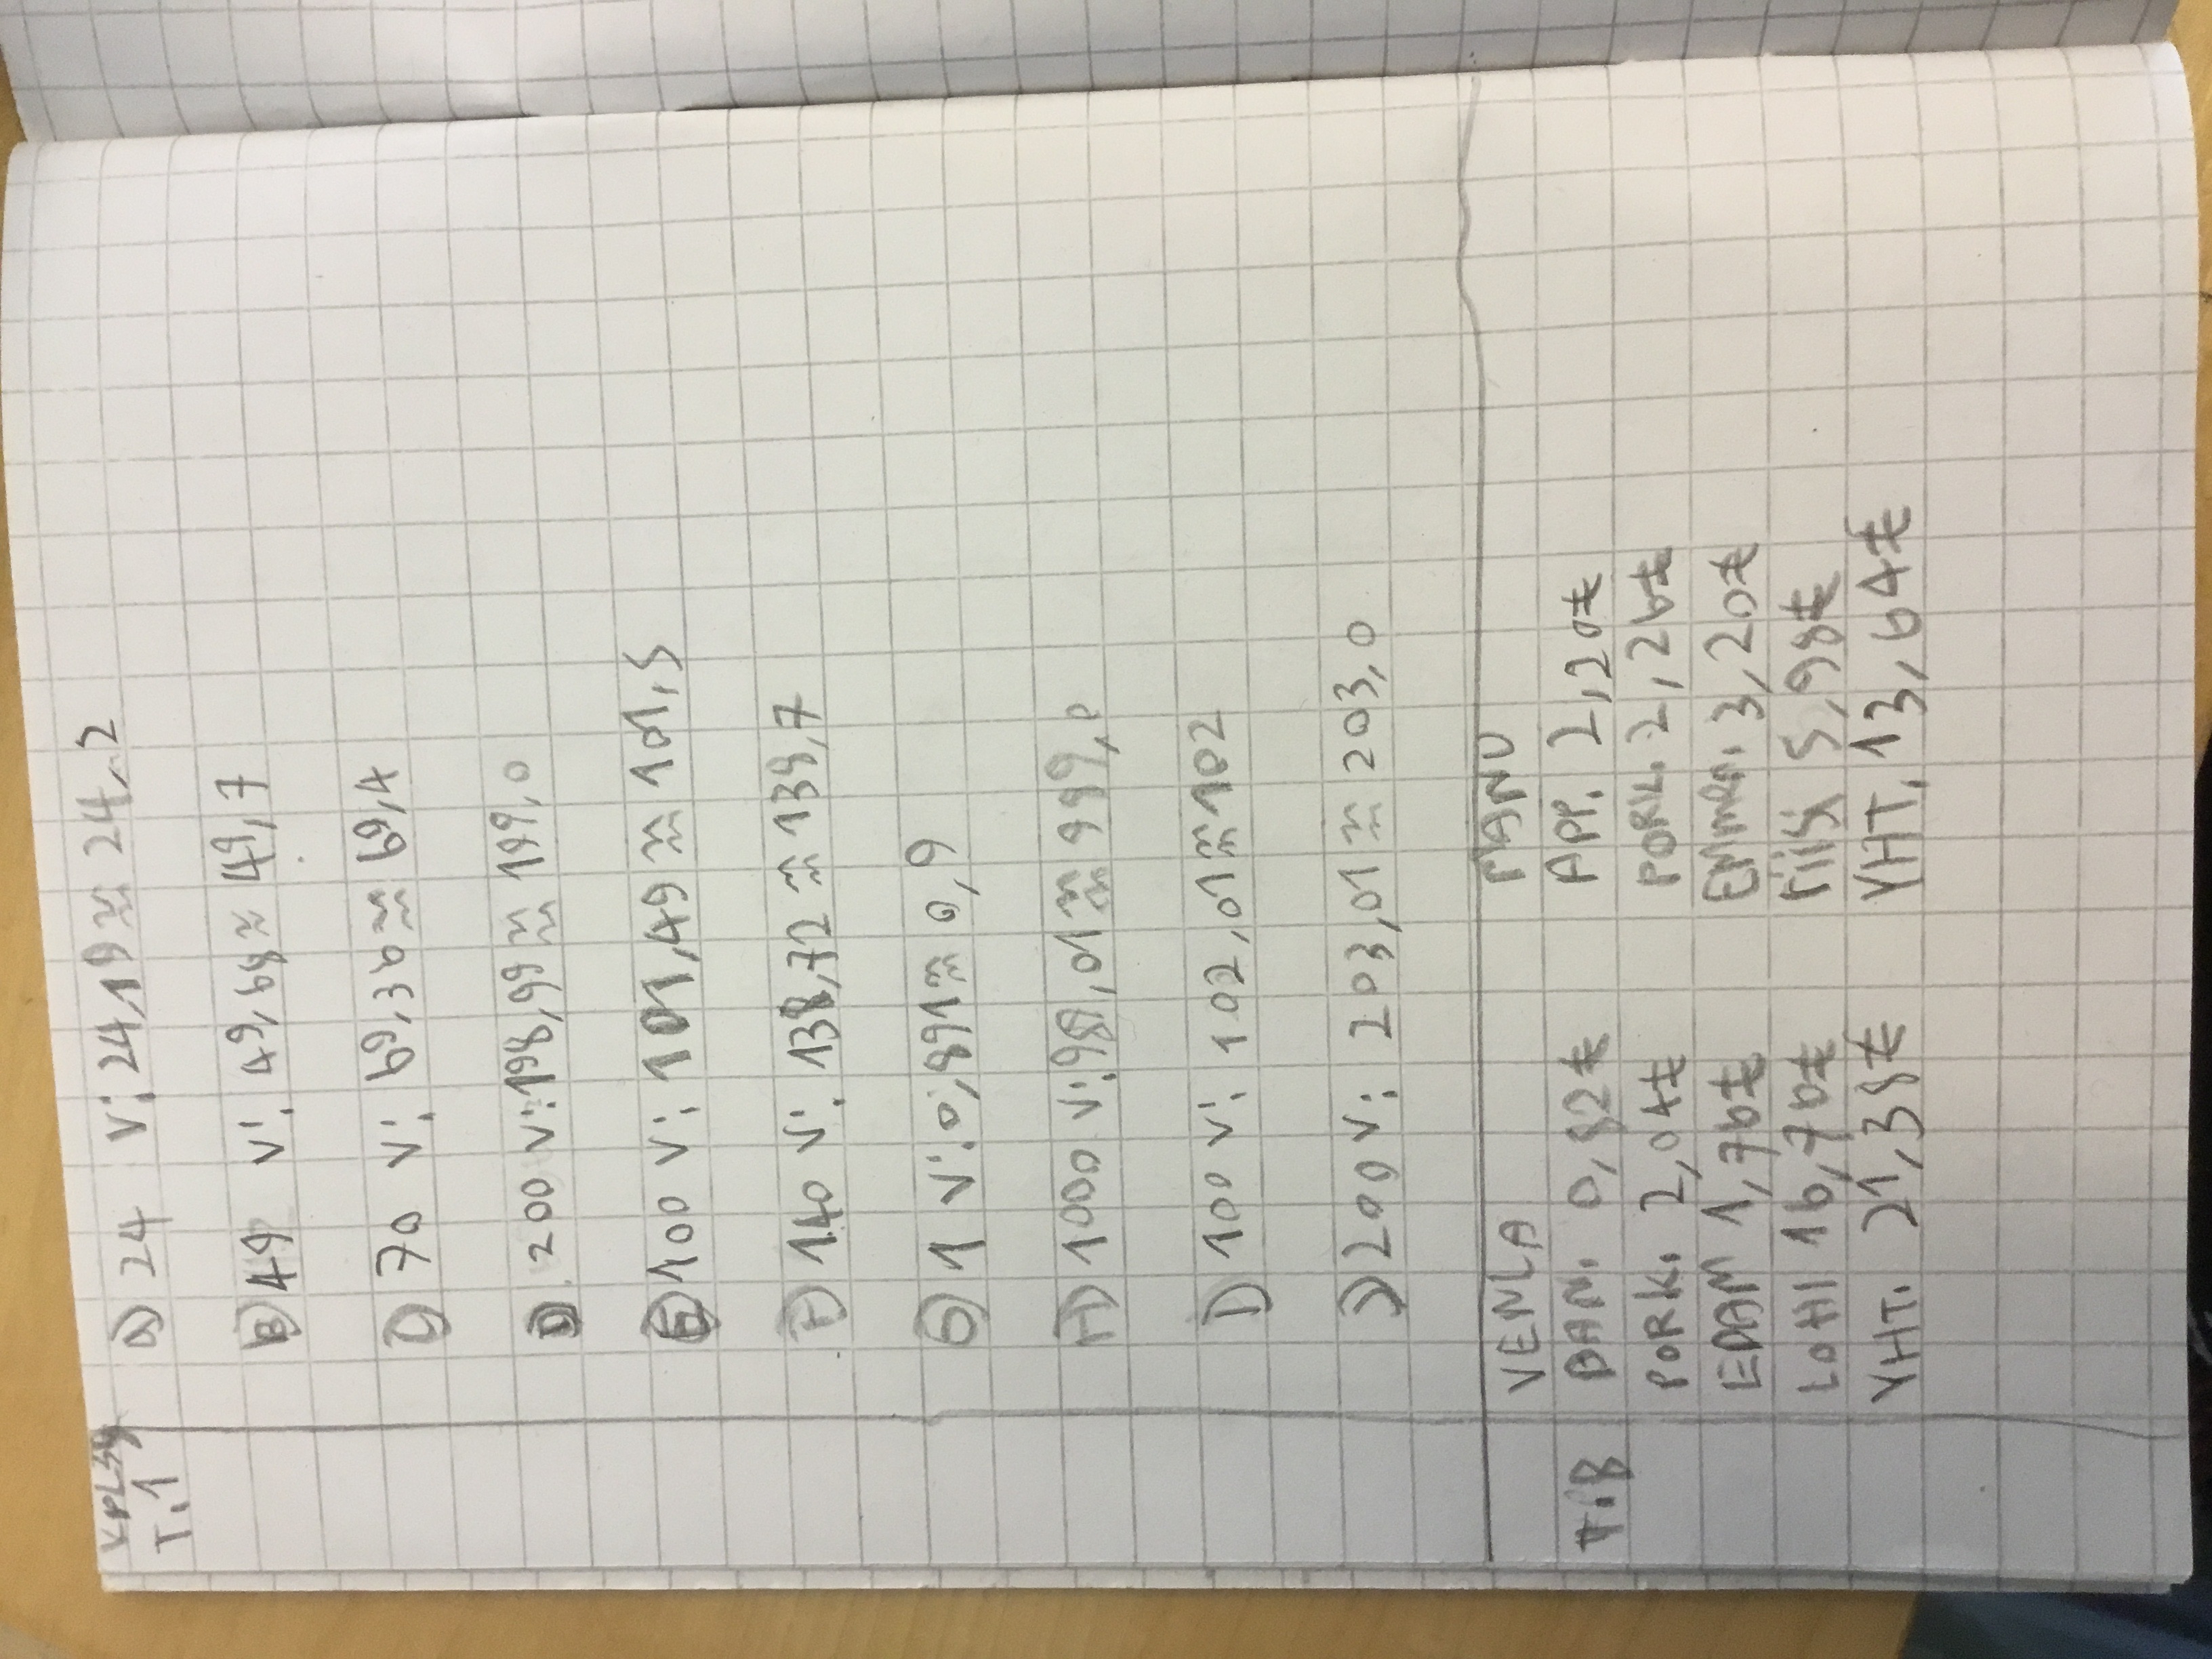 KPL 34
T.1 A) 24 V: 24,19 ≈ 24,2
B) 49 V: 49,68 ≈ 49,7
C) 70 V: 69,36 ≈ 69,4
D) 200 V: 198,99 ≈ 199,0
E) 100 V: 101,49 ≈ 101,5
F) 140 V: 138,72 ≈ 138,7
G) 1 V: 0,891 ≈ 0,9
H) 1000 V: 989,01 ≈ 989,0
I) 100 V: 102,01 ≈ 102
J) 200 V: 203,01 ≈ 203,0
VENLA MANU
T.8 BAN. 0,82€ APP. 2,20€
PORK. 2,04€ PORK. 2,26€
EDAM 1,76€ EMMEN. 3,20€
LOHI 16,76€ riisi 5,98€
YHT. 21,38€ YHT. 13,64€